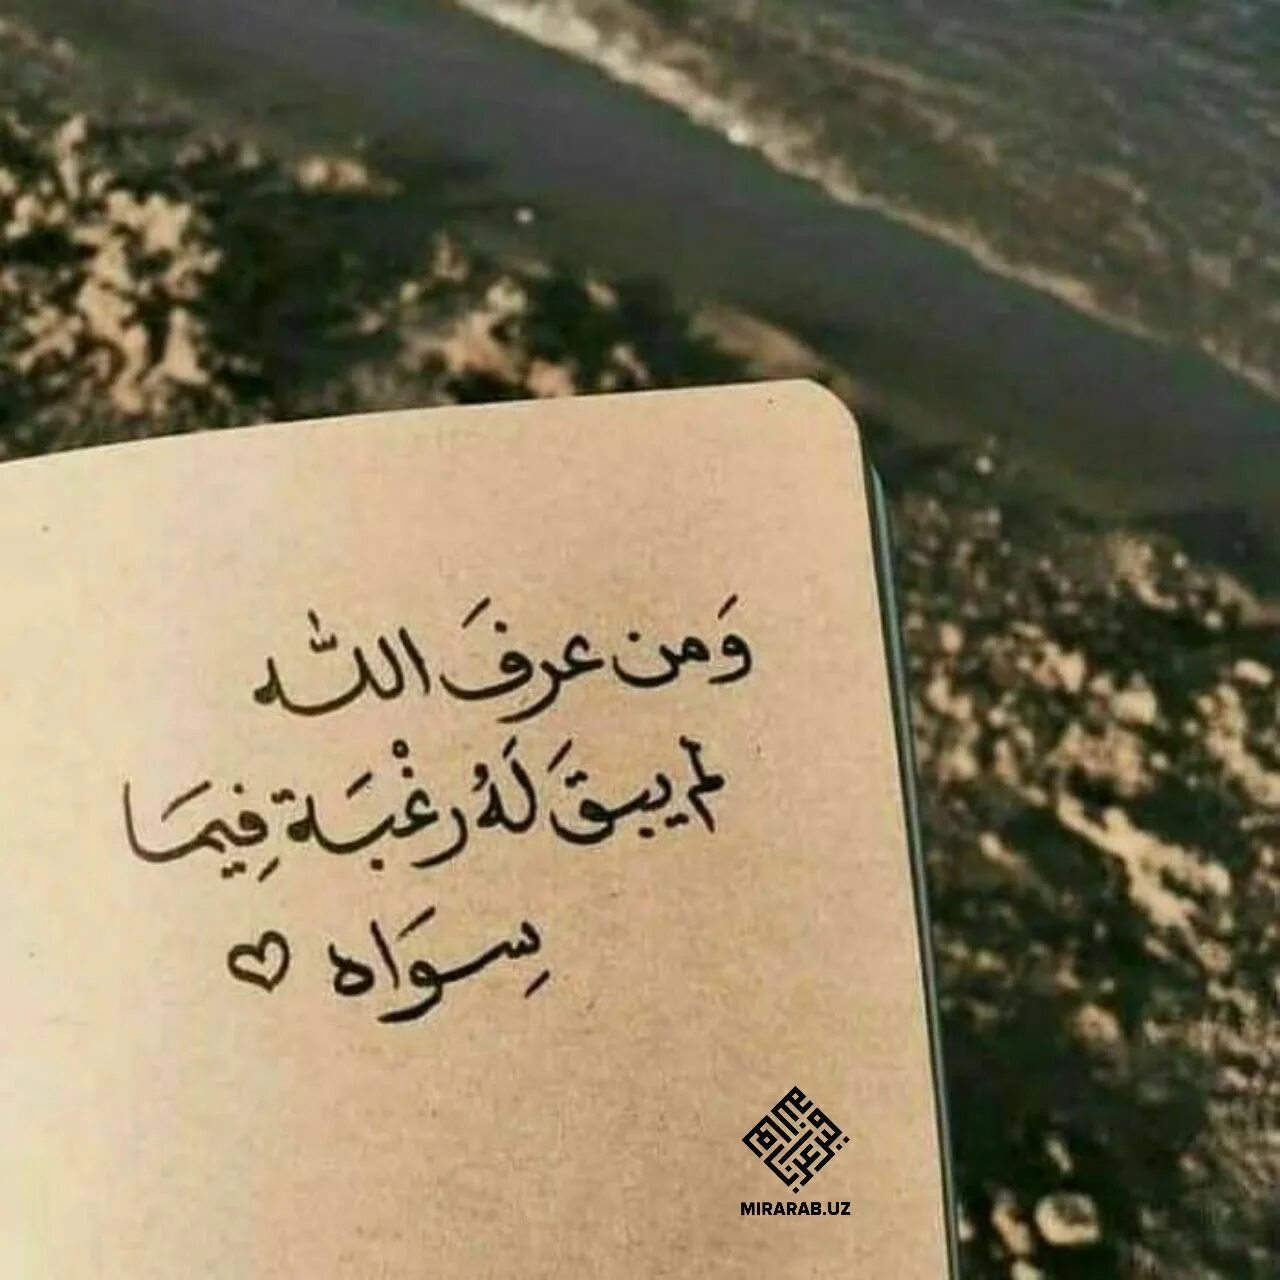 وَمن عرفَ اللّٰه
لم يبقَ لَهُ رغْبَة فِيمَا
سِوَاه ♡
MIRARAB.UZ